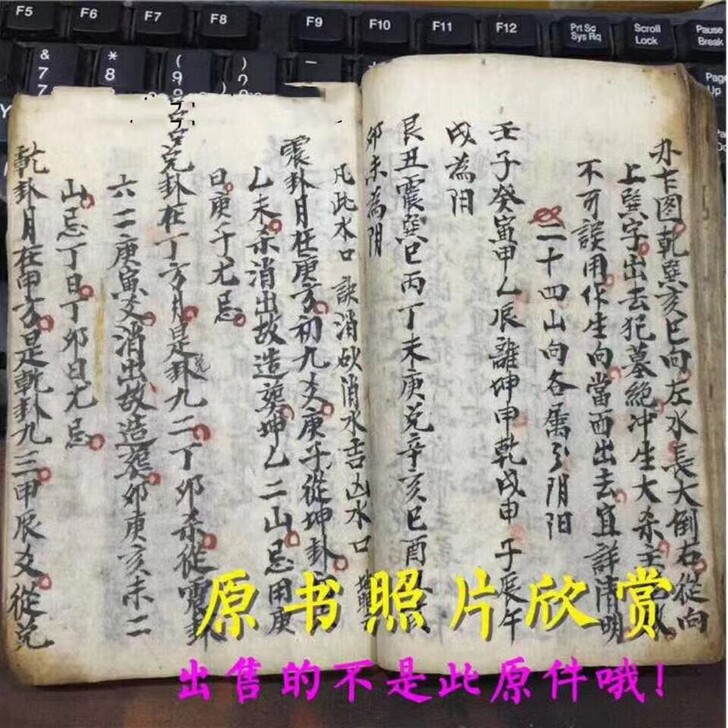 F5 F6 F7 F8 F9 F10 F11 F12 Prt Sc Sys Rq Scroll Lock Pause Break
& 7 * 8 ( 9 ) Page
办占图乾巽亥巳向左水長大倒右從向
上巽字出去犯墓絶冲生大杀主
不可誤用作生向當面出去宜詳清明
二十四山向各属分阴阳
壬子癸寅甲乙辰離坤申乾戌申子辰午
戌為阳
艮丑震巽巳丙丁未庚兑辛亥巳酉
卯未為阴
凡此水口訣消砍消水吉凶水口
震卦月在庚方初九爻庚子從坤卦
乙未杀消出故造葬坤乙二山忌用庚
日庚午尤忌
兑卦在丁方月是兑卦九二丁卯杀從震卦
六二庚寅爻消出故造葬卯庚亥未二
山忌丁日丁卯日尤忌
乾卦月在甲方是乾卦九三甲辰爻從兑
原书照片欣赏
出售的不是此原件哦!